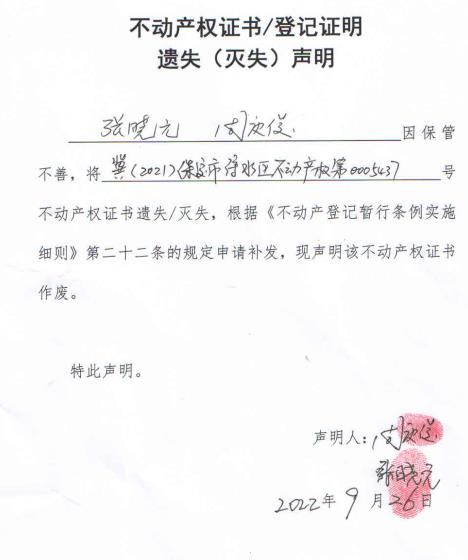 不动产权证书/登记证明
遗失（灭失）声明
张晓元 闫庆俊 因保管
不善，将 冀(2021)保定市徐水区不动产权第0005437 号
不动产权证书遗失/灭失，根据《不动产登记暂行条例实施
细则》第二十二条的规定申请补发，现声明该不动产权证书
作废。
特此声明。
声明人：闫庆俊
张晓元
2022年9月26日